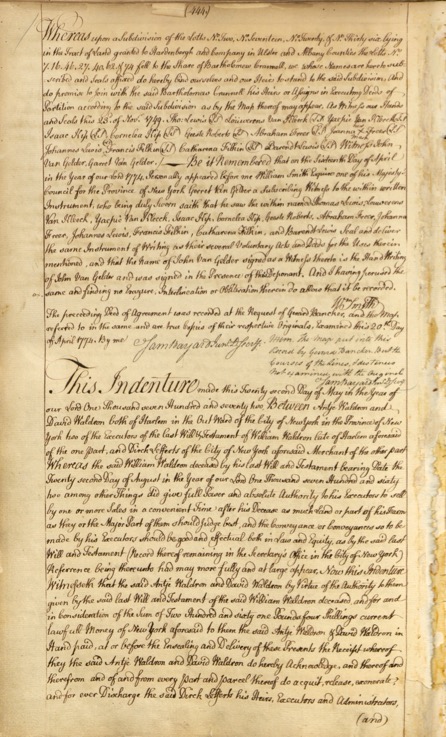 (444)
Whereas upon a Subdivision of the Lotts No. Two, No. Seventeen, No. Twenty, & No. Thirty six lying
in the Tract of Land granted to Hardenbergh and Company in Ulster and Albany Counties the Lotts No.
7. 16. 27. 40. & 74 fell to the Share of Bartholomew Crannell, we whose Names are hereby sub-
scribed and Seals affixed do hereby bind ourselves and our Heirs to stand to the said Subdivision, And
do promise to Join with the said Bartholomew Crannell his Heirs or Assigns in Executing Deeds of
Partition according to the said Subdivision as by the Map thereof may appear. As Witness our Hands
and Seals this 23d of Novr. 1769. Tho. Lewis Lourwerens Van Kleeck Yacpic Van Kleeck
Isaac Kip Cornelia Kip Geesle Roberts Abraham Freer Joanna Freer
Johannes Lewis Francis Filkin Catharena Filkin Barend Lewis Witness John
Van Gelder, Garet Van Gelder. Be it Remembered that on the Sixteenth Day of April
in the Year of our Lord 1774. Personally appeared before me William Smith Esquire one of his Majesty's
Council for the Province of New York Gerret Van Gelder a Subscribing Witness to the within written
Instrument, who being duly Sworn saith that he saw the within named Thomas Lewis, Louwerens
Van Kleeck, Yacpic Van Kleeck, Isaac Kip, Cornelia Kip, Geesle Roberts, Abraham Freer, Johanna
Freer, Johannes Lewis, Francis Filkin, Catharena Filkin, and Barend Lewis Seal and deliver
the same Instrument of Writing as their several Voluntary Acts and Deeds for the Uses therein
mentioned, and that the Name of John Van Gelder signed as a Witness thereto is the Hand Writing
of John Van Gelder and was signed in the Presence of this Deponent. And I having perused the
same and finding no Erazure, Interlineation or Obliteration therein do allow that it be recorded.
Wm Smith
The preceding Deed of Agreement was recorded at the Request of Gerard Bancker, and the Map
referred to in the same and are true Copies of their respective Originals, Examined this 20th Day
of April 1774. By me Sam Bayard Junr D. Secry.
Mem. The Map put into this
Record by Gerard Bancker. But the
Courses of the Lines & distances
Not examined with the Original
Sam Bayard Junr D. Secry
This Indenture made this Twenty second Day of May in the Year of
our Lord One Thousand seven Hundred and seventy two Between Antje Waldron and
David Waldron both of Harlem in the Out Ward of the City of New York in the Province of New
York two of the Executors of the last Will & Testament of William Waldron late of Harlem aforesaid
of the one part, and Dirck Lefferts of the City of New York aforesaid Merchant of the other part
Whereas the said William Waldron deceased by his last Will and Testament bearing Date the
Twenty second Day of August in the Year of our Lord One Thousand seven Hundred and sixty
two among other Things did give full Power and absolute Authority to his Executors to sell
by one or more Sales in a convenient Time after his Decease as much Land or part of his Farm
as they or the Major Part of them should judge best, and the Conveyance or Conveyances so to be
made by his Executors should be good and effectual both in Law and Equity, as by the said last
Will and Testament (Record thereof remaining in the Secretary's Office in the City of New York)
Reference being thereunto had may more fully and at large appear. Now this Indenture
Witnesseth that the said Antje Waldron and David Waldron by Virtue of the Authority to them
given by the said last Will and Testament of the said William Waldron deceased and for and
in consideration of the Sum of Two Hundred and sixty one Pounds four Shillings current
lawfull Money of New York aforesaid to them the said Antje Waldron & David Waldron in
Hand paid, at or before the Ensealing and Delivery of these Presents the Receipt whereof
they the said Antje Waldron and David Waldron do hereby Acknowledge, and thereof and
therefrom and of and from every part and parcel thereof do acquit, release, exonerate
and for ever Discharge the said Dirck Lefferts his Heirs, Executors and Administrators,
(and)